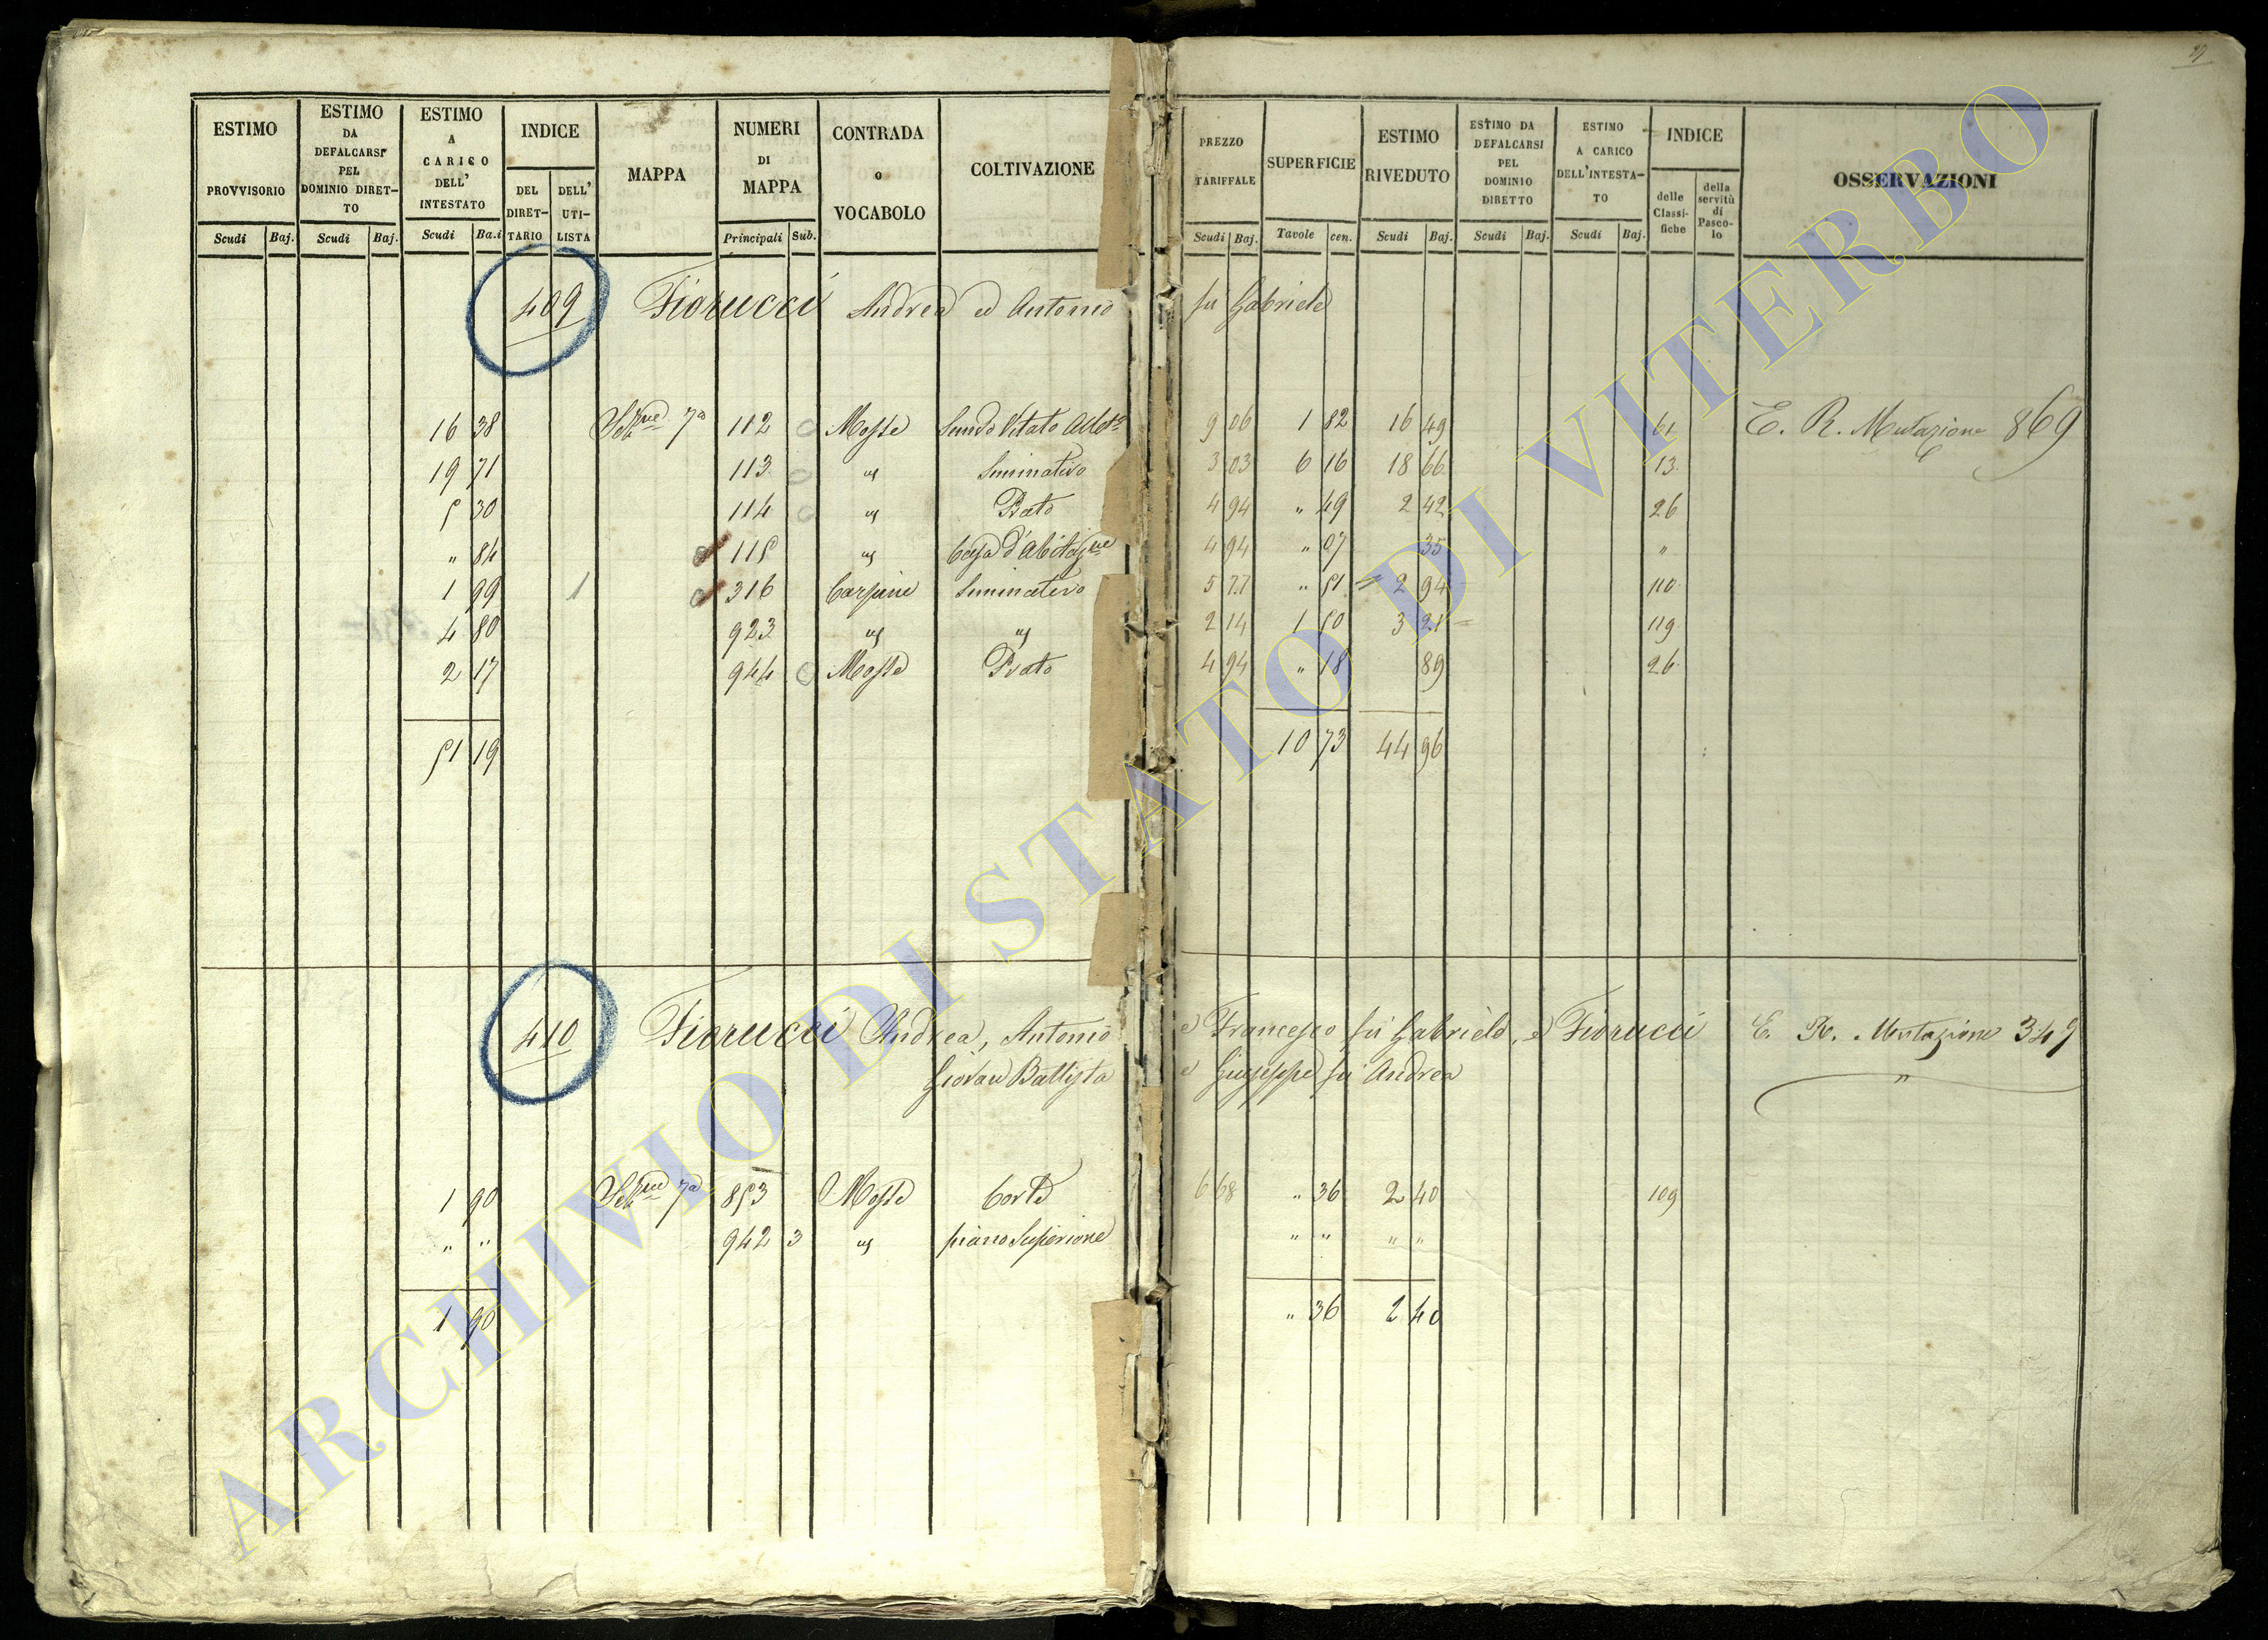 27
ESTIMO PROVVISORIO | ESTIMO DA DEFALCARSI PEL DOMINIO DIRETTO | ESTIMO A CARICO DELL' INTESTATO | INDICE | MAPPA | NUMERI DI MAPPA | CONTRADA O VOCABOLO | COLTIVAZIONE | PREZZO TARIFFALE | SUPERFICIE | ESTIMO RIVEDUTO | ESTIMO DA DEFALCARSI PEL DOMINIO DIRETTO | ESTIMO A CARICO DELL'INTESTATO | INDICE | OSSERVAZIONI
DEL DIRETTARIO | DELL' UTILISTA | delle Classifiche | della servitù di Pascolo
Scudi | Baj. | Scudi | Baj. | Scudi | Ba.i | Principali | Sub. | Scudi | Baj. | Tavole | cen. | Scudi | Baj. | Scudi | Baj. | Scudi | Baj.
409 Fiorucci Andrea ed Antonio fu Gabriele
16 38 | Sezne 7a | 112 | Mosse | Vitato | 9 06 | 1 82 | 16 49 | 61 | E. R. Mutazione 869
19 71 | 113 | " | Seminativo | 3 03 | 6 16 | 18 66 | 13
5 30 | 114 | " | Prato | 4 94 | " 49 | 2 42 | 26
" 84 | 115 | " | Casa d'Abitazne | 4 94 | " 07 | 35 | "
1 99 | 1 | 316 | Carpine | Seminativo | 5 77 | " 51 | 2 94 | 110
4 80 | 923 | " | " | 2 14 | 1 50 | 3 21 | 119
2 17 | 944 | Mosse | Prato | 4 94 | " 18 | 89 | 26
51 19 | 10 73 | 44 96
410 Fiorucci Andrea, Antonio e Francesco fu Gabriele, e Fiorucci E. R. Mutazione 349
Giovan Battista e Giuseppe fu Andrea "
1 90 | Sezne 7a | 853 | Mosse | Corte | 6 68 | " 36 | 2 40 | 109
" " | 942 3 | " | piano Superiore | " " | " "
1 90 | " 36 | 2 40
ARCHIVIO DI STATO DI VITERBO